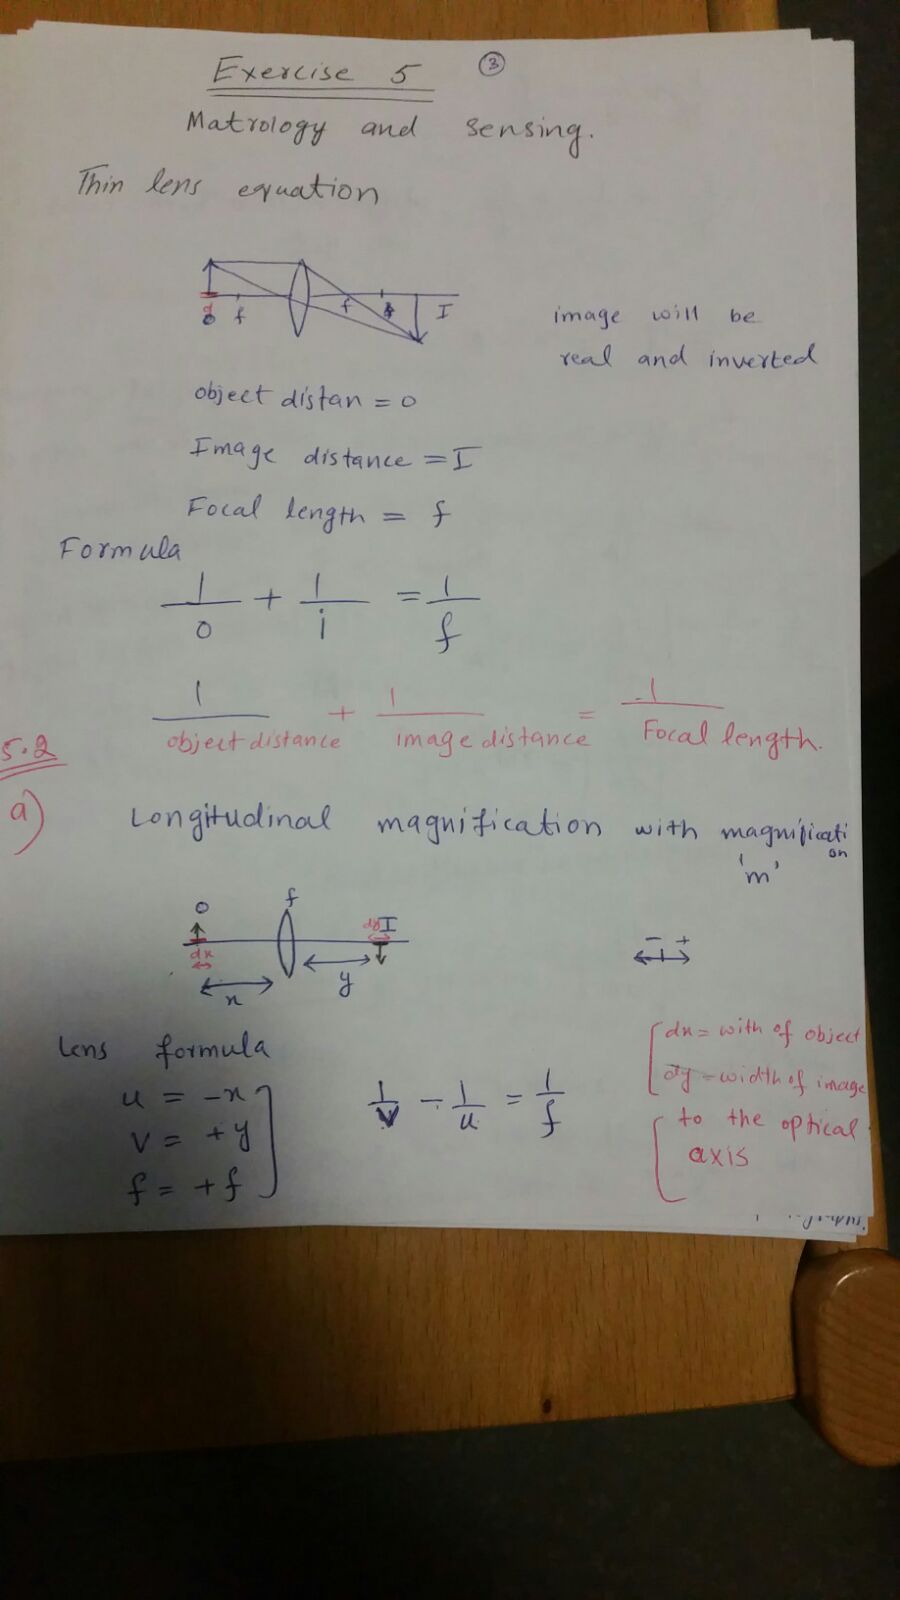 Exercise 5
3
Matrology and sensing.
Thin lens equation
d
O f f I
image will be
real and inverted
object distan = o
Image distance = I
Focal length = f
Formula
1/o + 1/i = 1/f
1/object distance + 1/image distance = 1/Focal length.
5.2
a)
Longitudinal magnification with magnificati
on
'm'
O f dy I
dx
x y
- +
Lens formula
u = -x
v = +y
f = +f
1/v - 1/u = 1/f
dx = with of object
dy - width of image
to the optical
axis